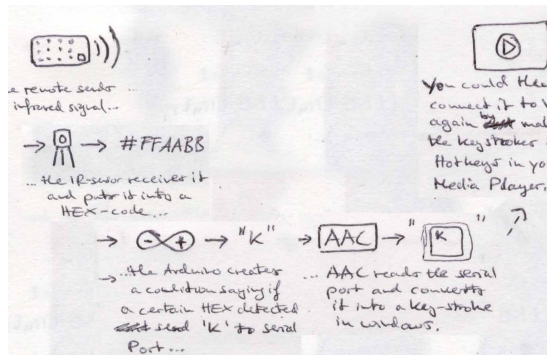 e remote sends ...
infrared signal...
→ → #FFAABB
... the IR-sensor receives it
and puts it into a
HEX-code...
→ → "K" → AAC → " K "
→ ...the Arduino creates
a condition saying if
a certain HEX detected
send 'K' to serial
Port...
... AAC reads the serial
port and converts
it into a key-stroke
in windows.
You could then
connect it to
again by
the keystrokes
Hotkeys in yo
Media Player.